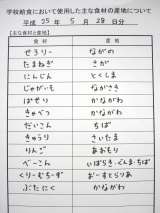 学校給食において使用した主な食材の産地について
平成 25 年 5 月 28 日分
【主な食材と産地】
食材 産地
せろりー ながの
たまねぎ さが
にんじん とくしま
じゃがいも ながさき
ぱせり かながわ
きゃべつ かながわ
だいこん ちば
きゅうり さいたま
りんご あおもり
べーこん いばらき・ぐんま・ちば
くりーむちーず おーすとらりあ
ぶたにく かながわ